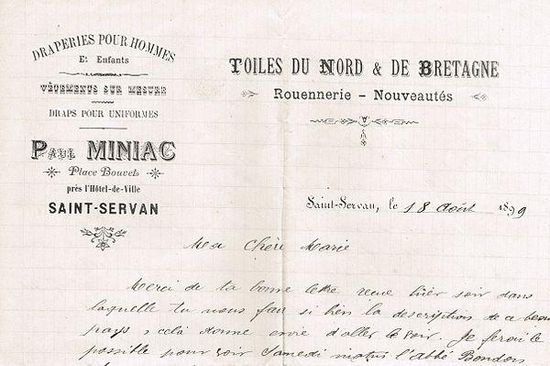 DRAPERIES POUR HOMMES
Et Enfants
VÊTEMENTS SUR MESURE
DRAPS POUR UNIFORMES
PAUL MINIAC
Place Bouvet
près l'Hôtel-de-Ville
SAINT-SERVAN
TOILES DU NORD & DE BRETAGNE
Rouennerie - Nouveautés
Saint-Servan, le 18 Août 1899
Ma Chère Marie
Merci de ta bonne lettre reçue hier soir dans
laquelle tu nous fais si bien la description de ce beau
pays, cela donne envie d'aller le voir. Je ferai le
possible pour voir Samedi matin l'abbé